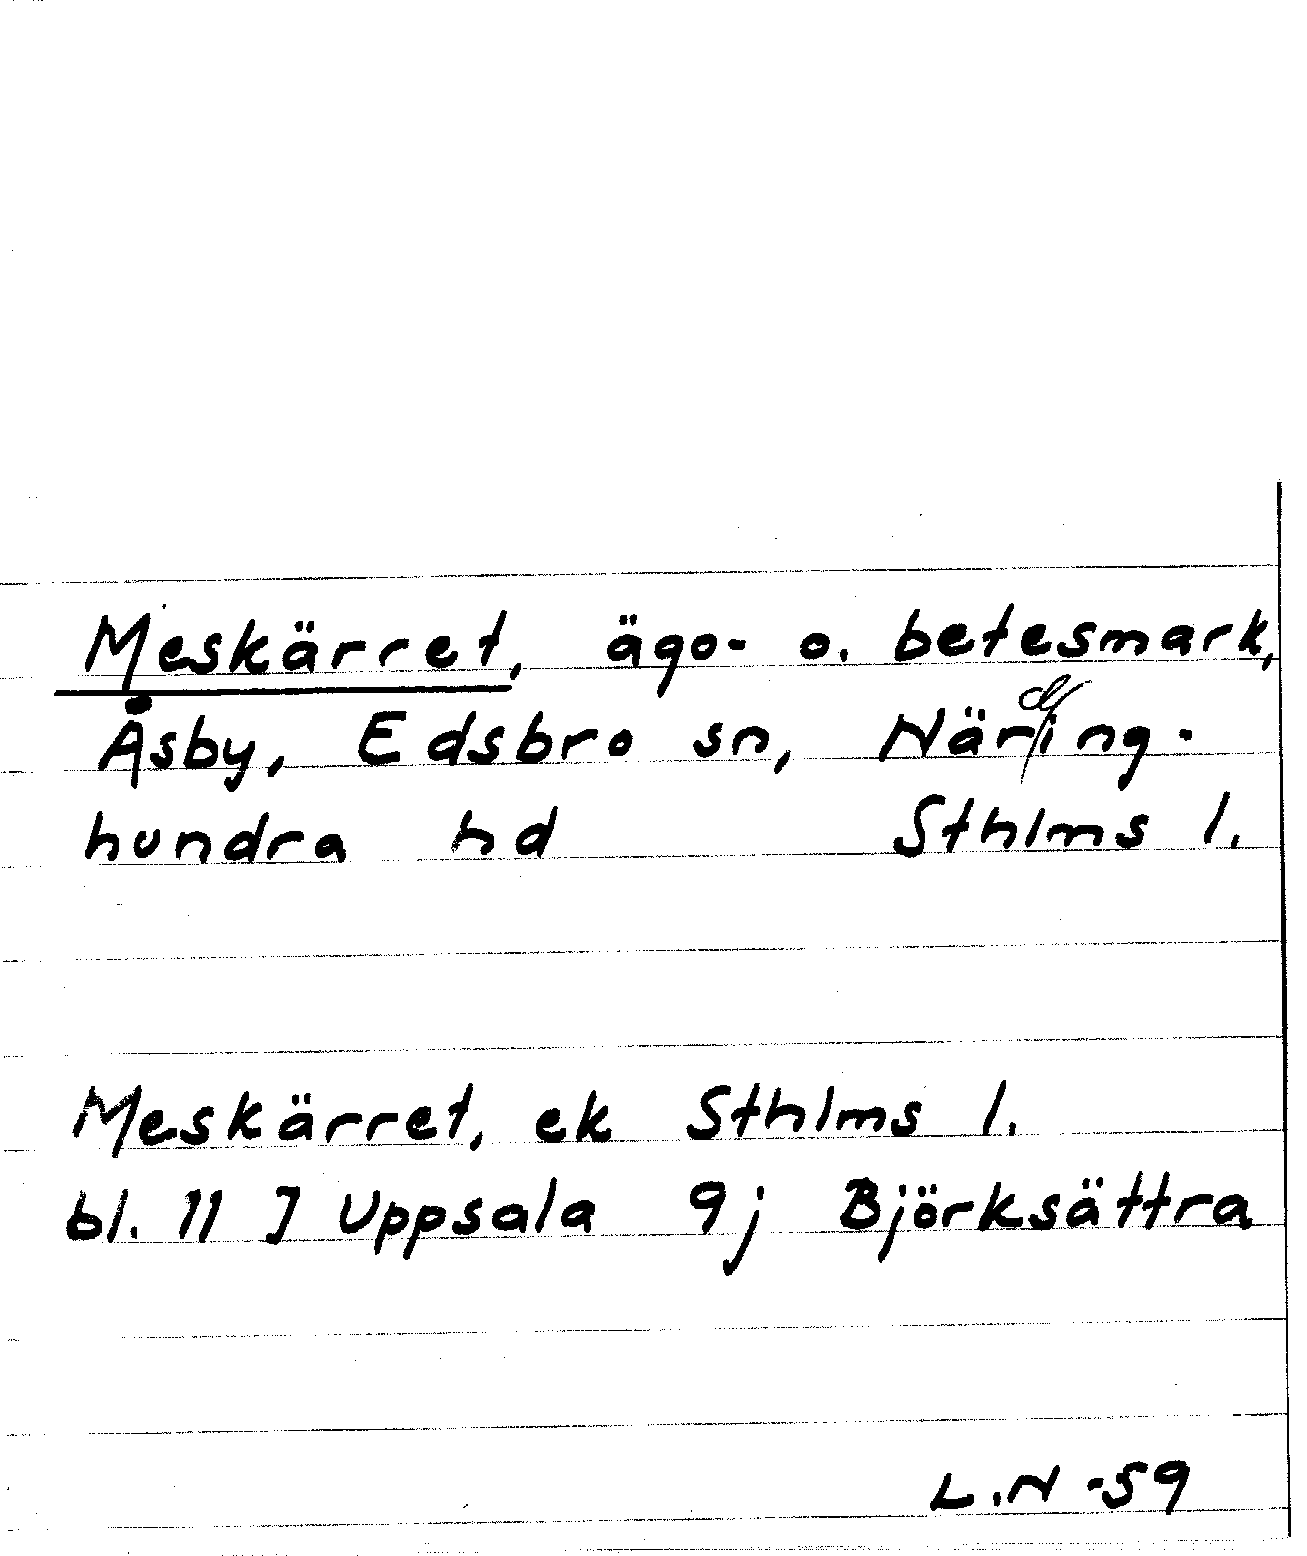 Meskärret, ägo- o. betesmark,
Åsby, Edsbro sn, Närding-
hundra hd Sthlms l.
Meskärret, ek Sthlms l.
bl. 11 J Uppsala 9j Björksättra
L.N -59